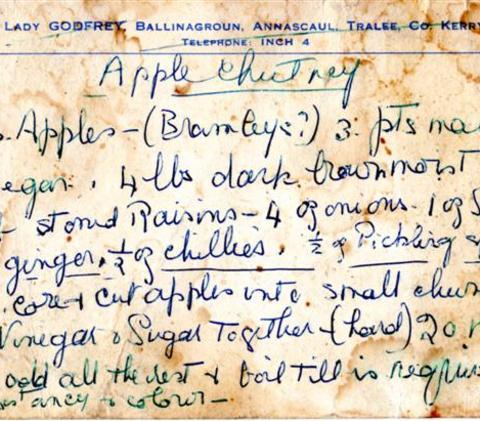 LADY GODFREY, BALLINAGROUN, ANNASCAUL, TRALEE, CO. KERRY
TELEPHONE: INCH 4
Apple Chutney
s. Apples - (Bramleys?) 3 pts ma
egar. 4 lbs dark brown moist
stoned Raisins - 4 oz onions. 1 oz S
ginger, ½ oz chillies. ½ oz Pickling s
core & cut apples into small chun
Vinegar & Sugar Together - (hard) 20 m
add all the rest & boil till is requir
& colour -